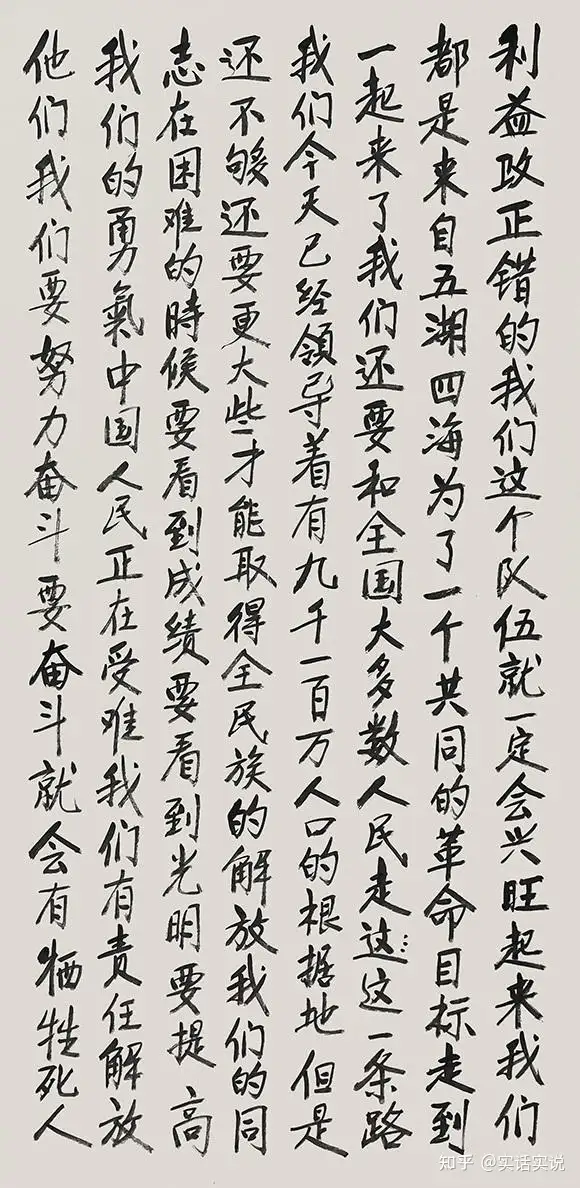 利益改正错的我们这个队伍就一定会兴旺起来我们
都是来自五湖四海为了一个共同的革命目标走到
一起来了我们还要和全国大多数人民走这这一条路
我们今天已经领导着有九千一百万人口的根据地但是
还不够还要更大些才能取得全民族的解放我们的同
志在困难的時候要看到成绩要看到光明要提高
我们的勇氣中国人民正在受难我们有责任解放
他们我们要努力奋斗要奋斗就会有牺牲死人
知乎 @实话实说